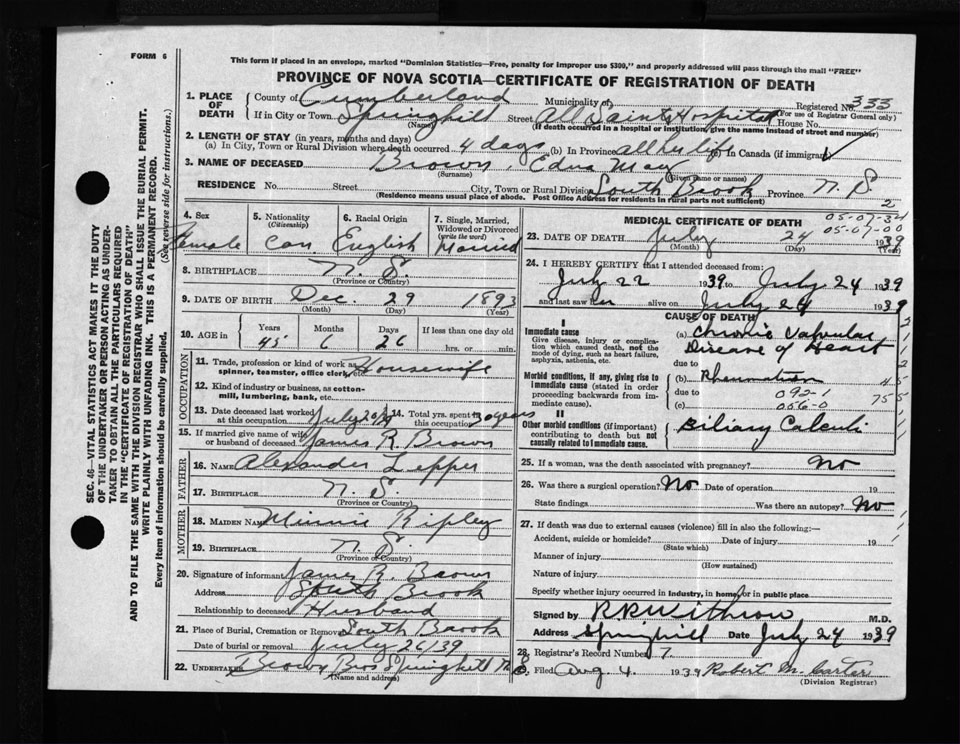 FORM 6
This form if placed in an envelope, marked "Dominion Statistics—Free, penalty for improper use $300," and properly addressed will pass through the mail "FREE"
PROVINCE OF NOVA SCOTIA—CERTIFICATE OF REGISTRATION OF DEATH
1. PLACE OF DEATH
County of Cumberland Municipality of Registered No. 333
(For use of Registrar General only)
If in City or Town Springhill Street All Saints Hospital House No.
(Name) (If death occurred in a hospital or institution, give the name instead of street and number)
2. LENGTH OF STAY (in years, months and days)
(a) In City, Town or Rural Division where death occurred 4 days (b) In Province all her life (c) In Canada (if immigrant)
3. NAME OF DECEASED Brown, Edna May
(Surname) (Given name or names)
RESIDENCE No. Street City, Town or Rural Division South Brook Province N. S.
(Residence means usual place of abode. Post Office Address for residents in rural parts not sufficient) 2
4. Sex Female
5. Nationality (Citizenship) Can
6. Racial Origin English
7. Single, Married, Widowed or Divorced (write the word) Married
8. BIRTHPLACE N. S.
(Province or Country)
9. DATE OF BIRTH Dec. 29 1893
(Month) (Day) (Year)
10. AGE in Years Months Days If less than one day old
45 6 26 hrs. or min.
OCCUPATION
11. Trade, profession or kind of work as spinner, teamster, office clerk, etc. Housewife
12. Kind of industry or business, as cotton-mill, lumbering, bank, etc.
13. Date deceased last worked at this occupation July 20/39 14. Total yrs. spent in this occupation 30 years
15. If married give name of wife or husband of deceased James R. Brown
FATHER
16. NAME Alexander Lepper
17. BIRTHPLACE N. S.
(Province or Country)
MOTHER
18. MAIDEN NAME Minnie Ripley
19. BIRTHPLACE N. S.
(Province or Country)
20. Signature of informant James R. Brown
Address South Brook
Relationship to deceased Husband
21. Place of Burial, Cremation or Removal South Brook
Date of burial or removal July 26/39
22. UNDERTAKER Brown Bros Springhill N. S.
(Name and address)
MEDICAL CERTIFICATE OF DEATH
05-07-34
05-07-00
23. DATE OF DEATH July 24 1939
(Month) (Day) (Year)
24. I HEREBY CERTIFY that I attended deceased from:
July 22 1939 to July 24 1939
and last saw her alive on July 24 1939
CAUSE OF DEATH
I
Immediate cause
Give disease, injury or complication which caused death, not the mode of dying, such as heart failure, asphyxia, asthenia, etc.
(a) Chronic Valvular Disease of Heart
due to
Morbid conditions, if any, giving rise to immediate cause (stated in order proceeding backwards from immediate cause).
(b) Rheumatism
due to 092-0
(c) 056-0
II
Other morbid conditions (if important) contributing to death but not causally related to immediate cause.
Biliary Calculi
25. If a woman, was the death associated with pregnancy? No
26. Was there a surgical operation? No Date of operation 19
State findings Was there an autopsy? No
27. If death was due to external causes (violence) fill in also the following:—
Accident, suicide or homicide? Date of injury 19
(State which)
Manner of injury
(How sustained)
Nature of injury
Specify whether injury occurred in industry, in home, or in public place
Signed by R R Withrow M.D.
Address Springhill Date July 24 1939
28. Registrar's Record Number 7.
Filed Aug 4. 1939 Robert M. Carter
(Division Registrar)
SEC. 46—VITAL STATISTICS ACT MAKES IT THE DUTY
OF THE UNDERTAKER OR PERSON ACTING AS UNDERTAKER TO OBTAIN ALL THE PARTICULARS REQUIRED
IN THE "CERTIFICATE OF REGISTRATION OF DEATH"
AND TO FILE THE SAME WITH THE DIVISION REGISTRAR WHO SHALL ISSUE THE BURIAL PERMIT.
WRITE PLAINLY WITH UNFADING INK. THIS IS A PERMANENT RECORD.
Every item of information should be carefully supplied. (See reverse side for instructions.)